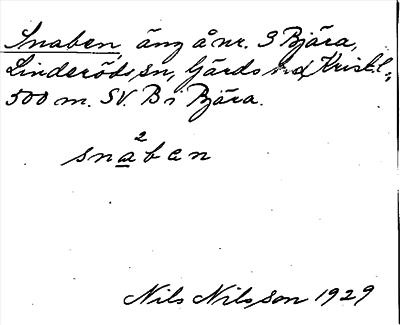 Snaben, äng å nr. 3 Bjära,
Linderöds sn, Gärds hd, Krist. l.,
500 m. SV. B i Bjära.
2
snaben
Nils Nilsson 1929